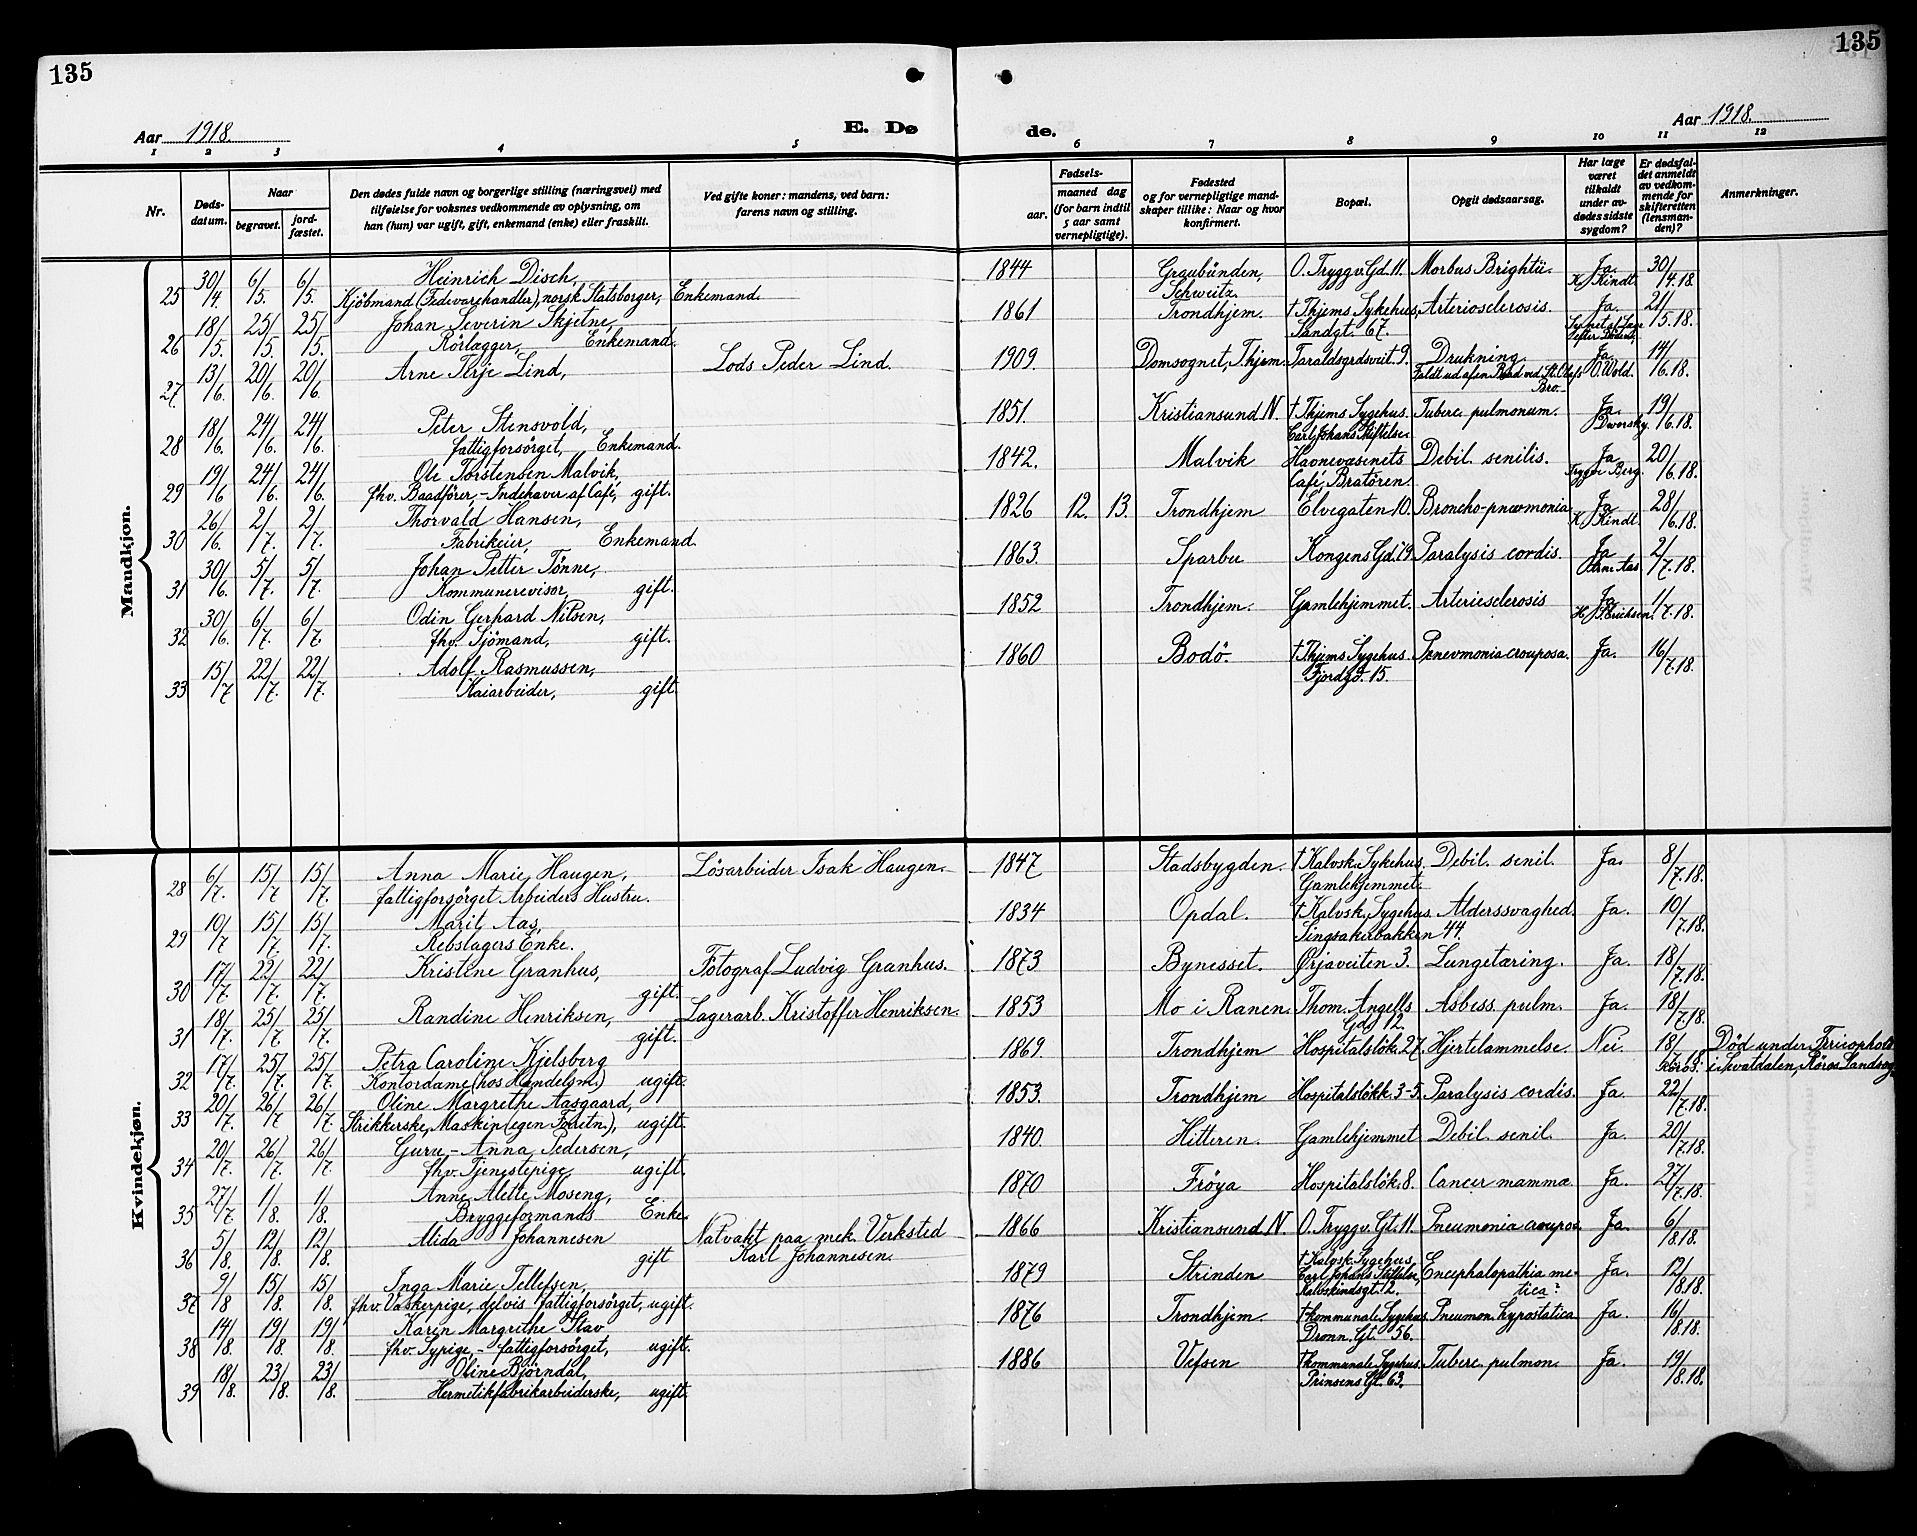 135
135
Aar 1918.
E. Dø
de.
Aar 1918.
1 2 3 4 5 6 7 8 9 10 11 12
Nr.
Døds-datum.
Naar
begravet.
jord-fæstet.
Den dødes fulde navn og borgerlige stilling (næringsvei) med
tilføielse for voksnes vedkommende av oplysning, om
han (hun) var ugift, gift, enkemand (enke) eller fraskilt.
Ved gifte koner: mandens, ved barn:
farens navn og stilling.
Fødsels-
aar.
maaned dag
(for barn indtil
5 aar samt
vernepligtige).
Fødested
og for vernepligtige mand-
skaper tillike: Naar og hvor
konfirmert.
Bopæl.
Opgit dødsaarsag.
Har læge
været
tilkaldt
under av-
dødes sidste
sygdom?
Er dødsfal-
det anmeldt
av vedkom-
mende for
skifteretten
(lensman-
den)?
Anmerkninger.
Mandkjøn.
25 30/4. 6/5. 6/5. Heinrich Disch, 1844 Graubünden, O. Tryggv. Gd. 11. Morbus Brightii. Ja. 30/4.18.
Kjöbmand (Fedevarehandler), norsk Statsborger, Enkemand. Schweitz. K. Kindt.
26 18/5. 25/5. 25/5. Johan Severin Skjetne, 1861 Trondhjem. † Thjems Sykehus, Arteriosclerosis. Ja. 21/5.18.
Rörlægger, Enkemand. Sandgt. 67.
27 13/6. 20/6. 20/6. Arne Terje Lind, Lods Peder Lind. 1909. Domsognet, Thjem. Taraldsgrdsveit 9. Drukning. Ja. 14/6.18.
Faldt ud af en Baad ved St. Olafs Bro. O. Wold.
28 18/6. 24/6. 24/6. Peter Stensvold, 1851. Kristiansund N. † Thjems Sygehus. Tuberc. pulmonum. Ja. 19/6.18.
fattigforsörget, Enkemand. Carl Johans Stiftelse. Dworsky.
29 19/6 24/6. 24/6. Ole Torstensen Malvik, 1842. Malvik Havnevæsenets Debil. senilis. Ja. 20/6.18.
fhv. Baadförer, - Indehaver af Café, gift. Café, Bratören. Trygve Berg.
30 26/6. 2/7. 2/7. Thorvald Hansen, 1826 12. 13. Trondhjem Elvegaten 10. Broncho-pnevmonia. Ja 28/6.18.
Fabrikeier, Enkemand. K. Kindt.
31 30/6. 5/7. 5/7. Johan Petter Tönne, 1863. Sparbu Kongens Gd. 79. Paralysis cordis. Ja 2/7.18.
Kommunerevisor, gift. Arne Aas
32 30/6. 6/7. 6/7. Odin Gerhard Nilsen, 1852 Trondhjem. Gamlehjemmet. Arteriesclerosis Ja 1/7.18.
fhv. Sjömand, gift. H. J. Erichsen.
33 15/7 22/7. 22/7. Adolf Rasmussen, 1860 Bodö. † Thjems Sygehus. Pnevmonia crouposa. Ja. 16/7.18.
Kaiarbeider, gift. Fjordgt. 15.
Kvindekjøn.
28 6/7. 15/7 15/7. Anna Marie Haugen, Lösarbeider Isak Haugen. 1847 Stadsbygden. † Kalvsk. Sykehus, Debil. senil. Ja. 8/7.18.
fattigforsörget Arbeiders Hustru. Gamlehjemmet.
29 10/7 15/7. 15/7. Marit Aas, 1834 Opdal. † Kalvsk. Sygehus. Alderssvaghed. Ja. 10/7.18.
Rebslagers Enke. Singsakerbakken 44.
30 17/7. 22/7. 22/7. Kristene Granhus, Fotograf Ludvig Granhus. 1873 Bynesset. Ørjaveiten 3. Lungetæring. Ja. 18/7.18.
gift.
31 18/7. 25/7. 25/7. Randine Henriksen, Lagerarb. Kristoffer Henriksen. 1853 Mo i Ranen. Thom. Angells Asbess. pulm. Ja. 18/7.18.
gift. Gds. 12.
32 17/7. 25/7. 25/7. Petra Caroline Kjelsberg 1869. Trondhjem Hospitalslök. 27. Hjertelammelse. Nei. 18/ Död under Ferieophold
Kontordame (hos Handelsm.) ugift. i Kvatdalen, Röros Landsogn
33 20/7. 26/7 26/7. Oline Margrethe Aasgaard, 1853. Trondhjem Hospitalslökk. 3-5. Paralysis cordis. Ja. 22/7.18.
Strikkerske, Maskin (egen Forretn.), ugift.
34 20/7. 26/7. 26/7. Guru-Anna Pedersen, 1840. Hitteren. Gamlehjemmet Debil. senil. Ja. 20/7.18.
fhv. Tjenestepige, ugift.
35 27/7. 1/8. 1/8. Anne Alette Moseng, 1870 Fröya Hospitalslök. 8. Cancer mammæ. Ja. 27/7.18.
Bryggeformands Enke.
36 5/8. 12/8. 12/8. Alida Johannesen Natvakt paa mek. Verksted 1866 Kristiansund N. O. Tryggv. Gt. 11. Pneumonia croupos. Ja. 6/8.18.
gift Karl Johannesen.
37 9/8 15/8. 15/8. Inga Marie Tellefsen, 1879 Strinden † Kalvsk. Sygehus, Carl Johans Stiftelse, Encephalopathia me- Ja. 12/8.18.
fhv. Vaskerpige, delvis fattigforsörget, ugift. Kalvskindsgt. 2. tica?
38 14/8. 19/8. 19/8. Karen Margrethe Stav 1876 Trondhjem. † kommunale Sygehus. Pneumon. hypostatica Ja. 16/8.18.
fhv. Sypige, - fattigforsörget, ugift. Dronn. Gt. 56.
39 18/8. 23/8. 23/8. Oline Björndal, 1886 Vefsen † kommunale Sygehus. Tuberc. pulmon. Ja. 19/8.18.
Hermetikfabrikarbeiderske, ugift. Prinsens Gt. 63.